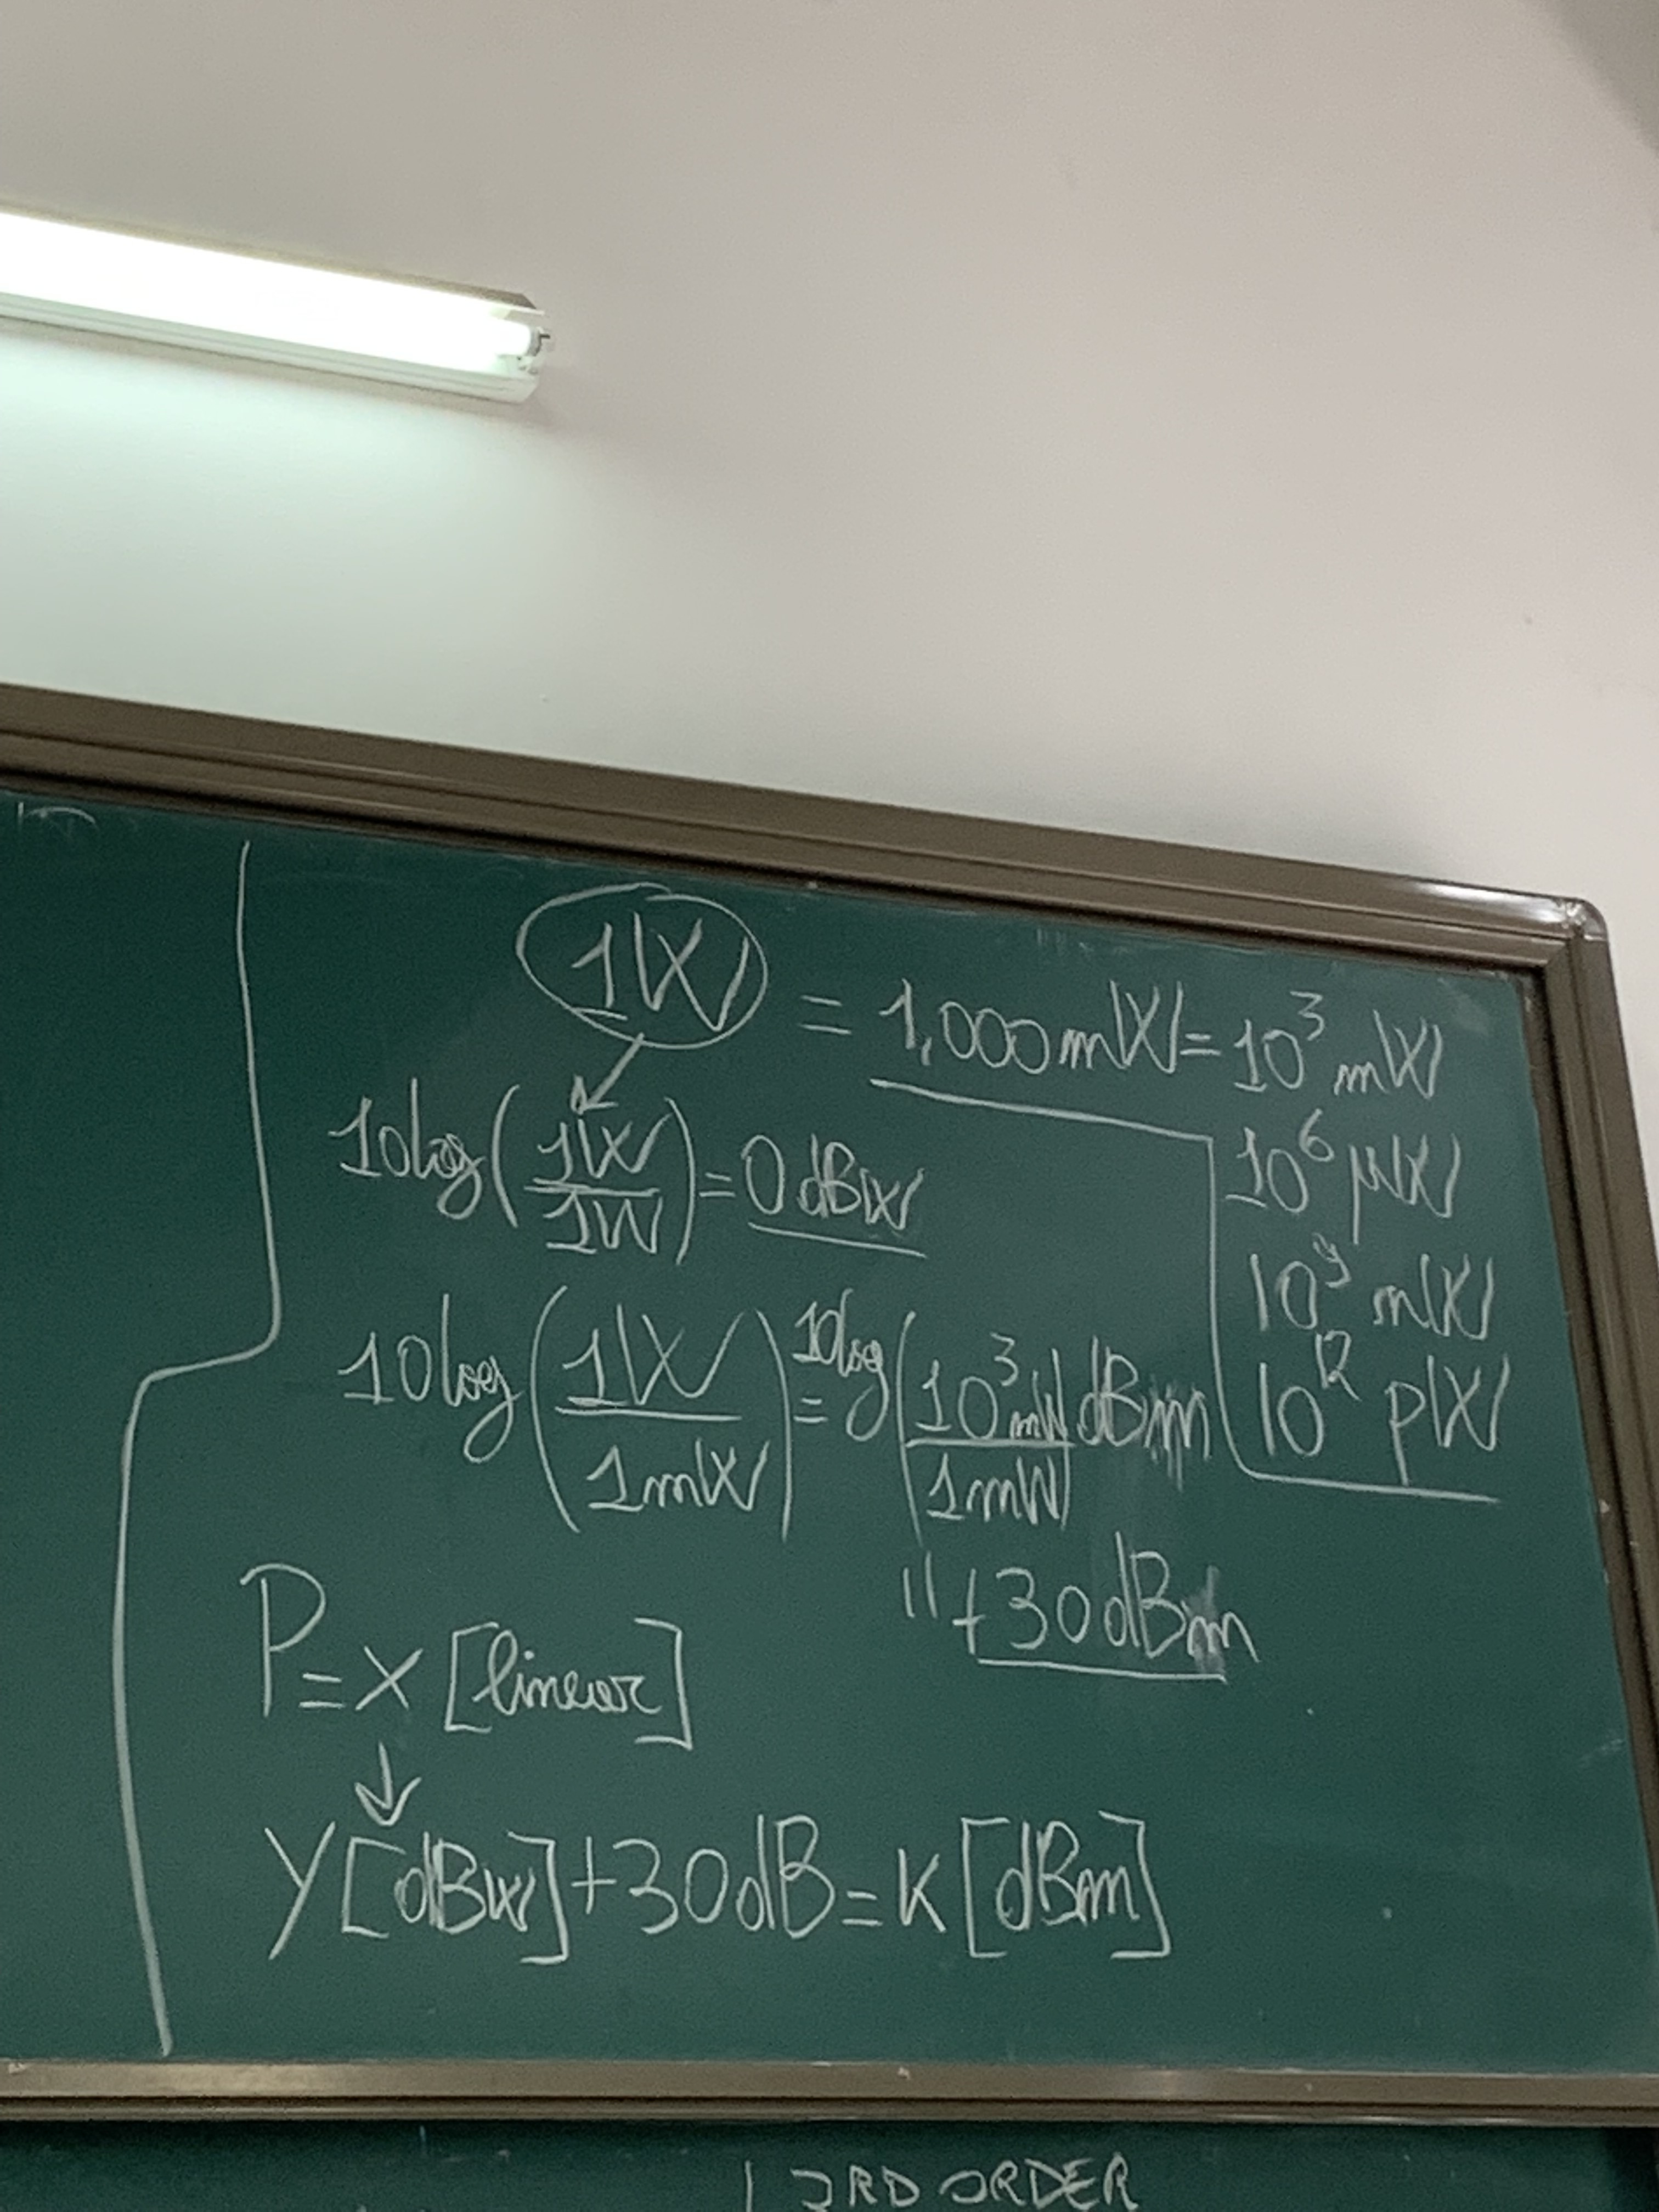 1W = 1,000mW = 10³ mW
10⁶ µW
10⁹ nW
10¹² pW
10log(1W/1W) = 0 dBW
10log(1W/1mW) = 10log(10³mW/1mW) dBm
" +30dBm
P = x [linear]
↓
y[dBW]+30dB = k [dBm]
3RD ORDER